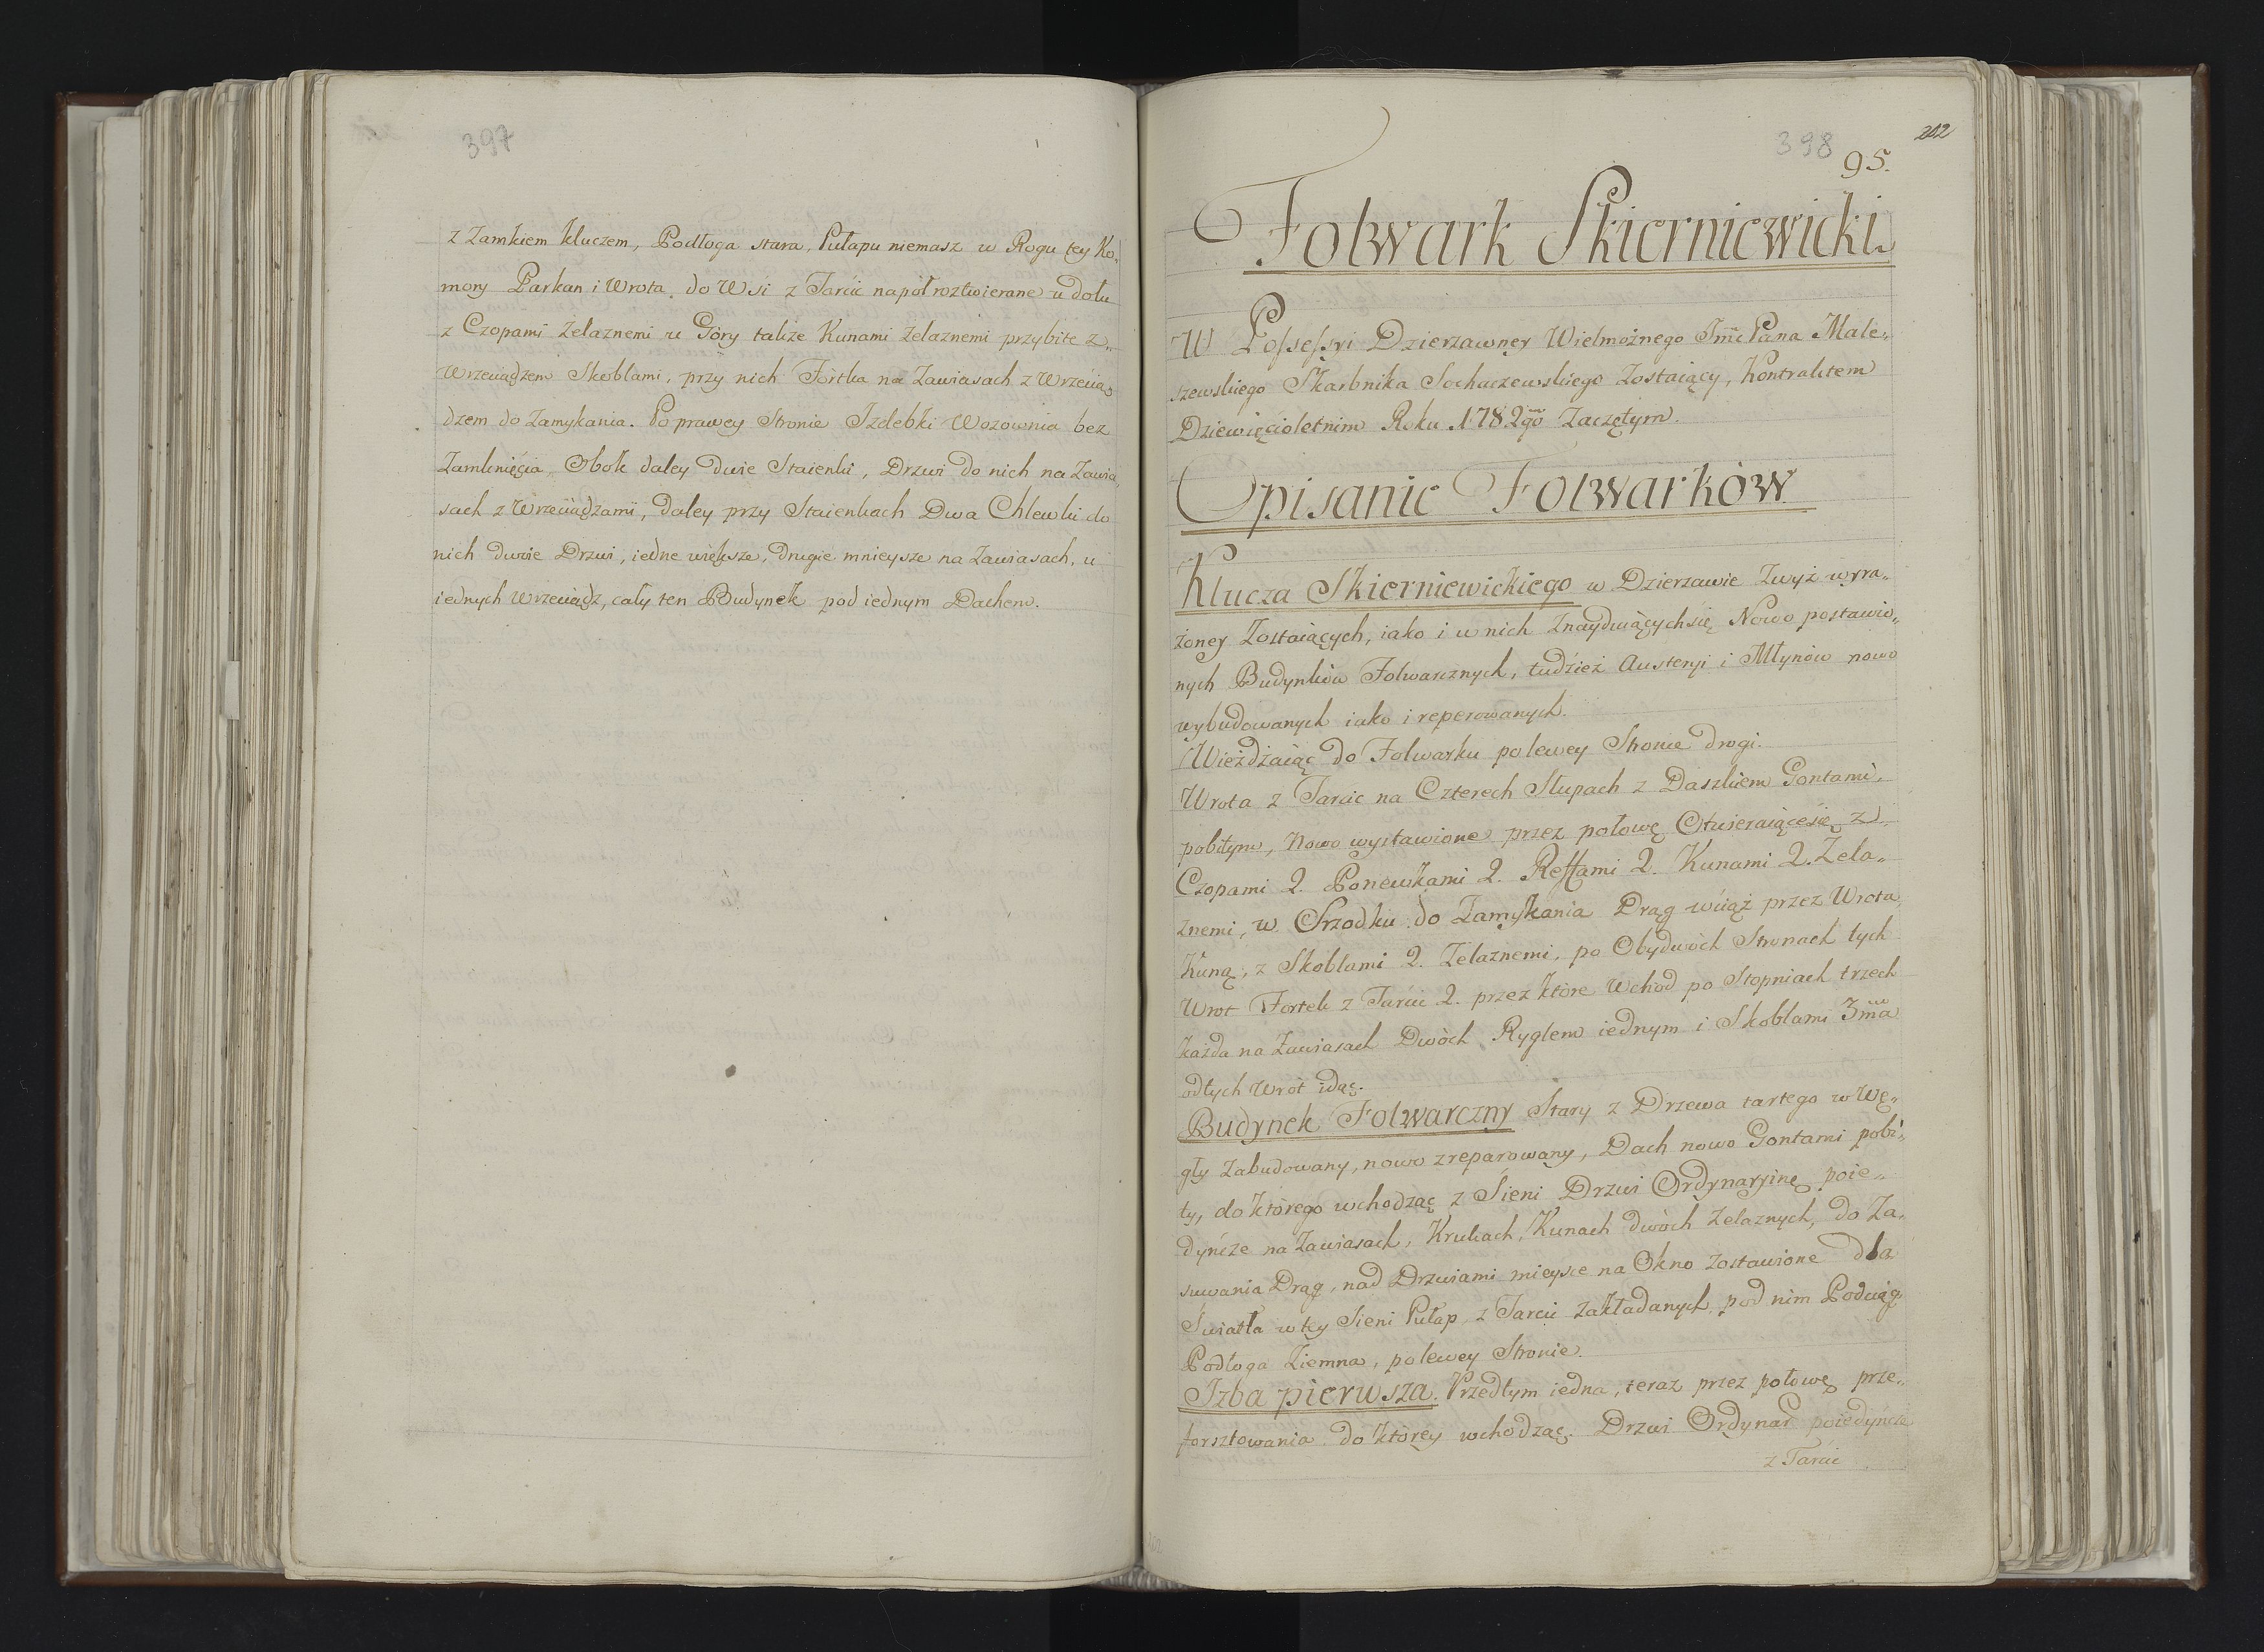 397
z Zamkiem kluczem, Podłoga stara, Pułapu niemasz w Rogu tey Ko„
mory Parkan i Wrota do Wsi z Tarcic napół roztwierane u dołu
z Czopami Zelaznemi u Góry takze Kunami Zelaznemi przybite z„
Wrzeciądzem Skoblami, przy nich Fortka na Zawiasach z Wrzecią„
dzem do Zamykania. Po prawey Stronie Izdebki Wozownia bez
Zamknięcia, Obok daley dwie Staienki, Drzwi do nich na Zawia„
sach z Wrzeciądzami, daley przy Staienkach Dwa Chlewki do
nich dwie Drzwi, iedne większe, drugie mnieysze na Zawiasach, u
iednych Wrzeciądz, cały ten Budynek pod iednym Dachem.
398
202
95.
Folwark Skierniewicki
W Possessyi Dzierzawney Wielmożnego Jmć Pana Male„
szewskiego Skarbnika Sochaczewskiego Zostaiący, Kontraktem
Dziewięcioletnim Roku 1782go Zaczętym.
Opisanie Folwarków
Klucza Skierniewickiego w Dzierzawie Zwyż wyra„
żoney Zostaiących, iako i w nich Znayduiących się Nowo postawio„
nych Budynków Folwarcznych, tudzież Austeryi i Młynów nowo
wybudowanych iako i reperowanych.
Wieżdżaiąc do Folwarku po lewey Stronie drogi.
Wrota z Tarcic na Czterech Słupach z Daszkiem Gontami,
pobitym, Nowo wystawione przez połowę Otwieraiącesię z
Czopami 2. Ponewkami 2. Reffami 2. Kunami 2. Zela„
znemi, w Srzodku do Zamykania Drąg wciąż przez Wrota
Kuną, z Skoblami 2. Zelaznemi, po Obydwóch Stronach tych
Wrot Fortek z Tarcic 2. przez które Wchód po Stopniach trzech
każda na Zawiasach Dwóch Ryglem iednym i Skoblami 3ma
odtych Wrót idąc.
Budynek Folwarczny Stary z Drzewa tartego w Wę„
gły Zabudowany, nowo zreparowany, Dach nowo Gontami pobi„
ty, do którego wchodząc z Sieni Drzwi Ordynaryine poie„
dyńcze na Zawiasach, Krukach, Kunach dwóch Zelaznych, do Za„
suwania Drąg, nad Drzwiami mieysce na Okno Zostawione dla
Swiatła w tey Sieni Pułap z Tarcic Zakładanych, pod nim Podciąg
Podłoga Ziemna, po lewey Stronie.
Izba pierwsza. Przedtym iedna, teraz przez połowę prze„
forsztowania do którey wchodząc Drzwi Ordynar. poiedyńcze
z Tarcic